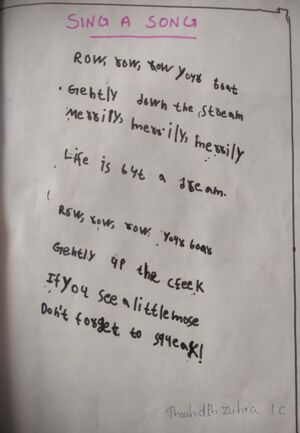 SING A SONG
Row, row, row your boat
Gently down the stream
Merrily, merrily, merrily
Life is but a dream.
Row, row, row your boat
Gently up the creek
If you see a little mose
Don't forget to squeak!
Zuhra 1 C